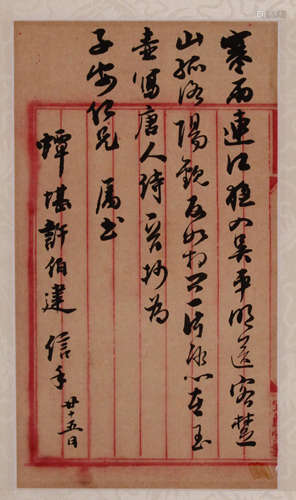 寒雨連江夜入吳平明送客楚
山孤洛陽親友如相問一片冰心在玉
壺寫唐人詩為
子安仁兄 属書
蟫堪許伯建 信手 十五日